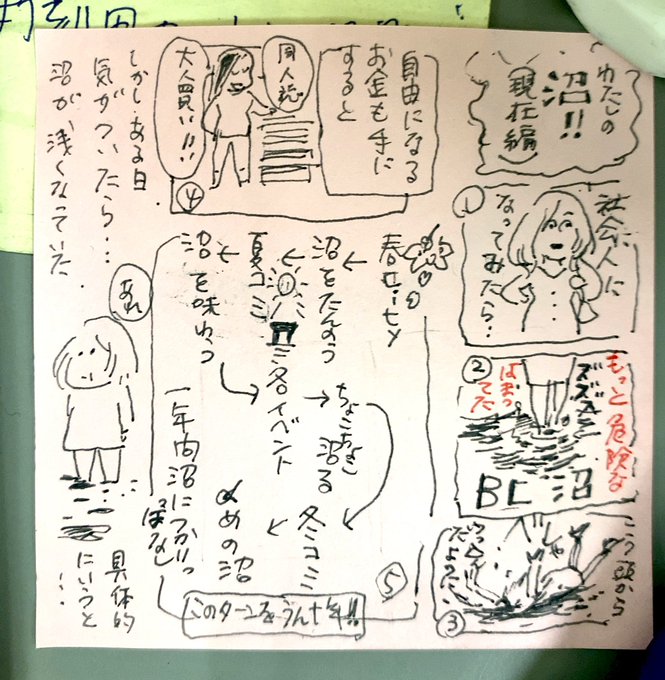 わたしの
沼!!
現在編
①
社会人に
なってみたら…
②
もっと危険な
はまってた
ズズズ
BL沼
こう頭から
③
自由になる
お金も手に
すると
同人誌
大人買い!!
④
沼をたんのう
夏コミ
沼を味わう
各イベント
ちょこちょこ
沼る
冬コミ
〆めの沼
一年内沼につかりっ
ぱなし
⑤
このターンをうん十年!!
しかし、ある日
気がついたら…
沼が浅くなっていた
あれ
具体的
にいうと
…